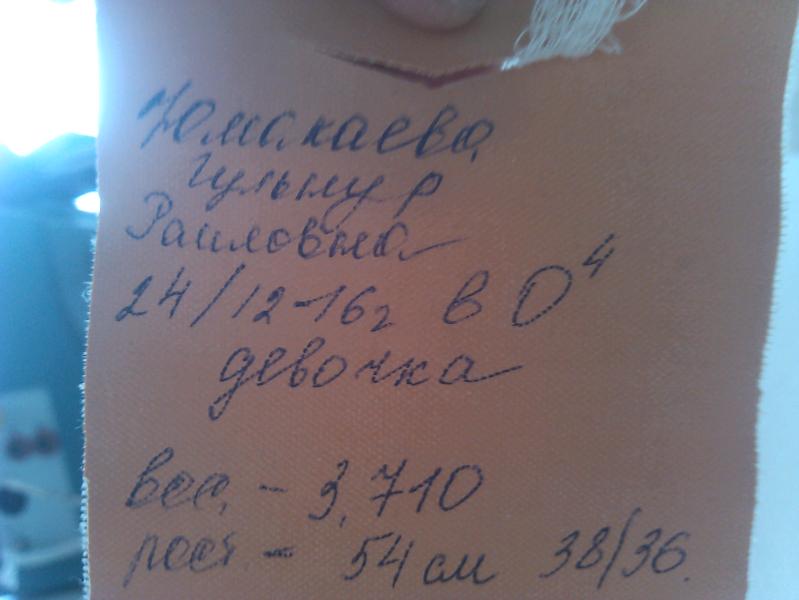 Юмакаева
Гульнур
Раиловна
24/12-16г в 0⁴
девочка
вес - 3,710
рост - 54 см 38/36.